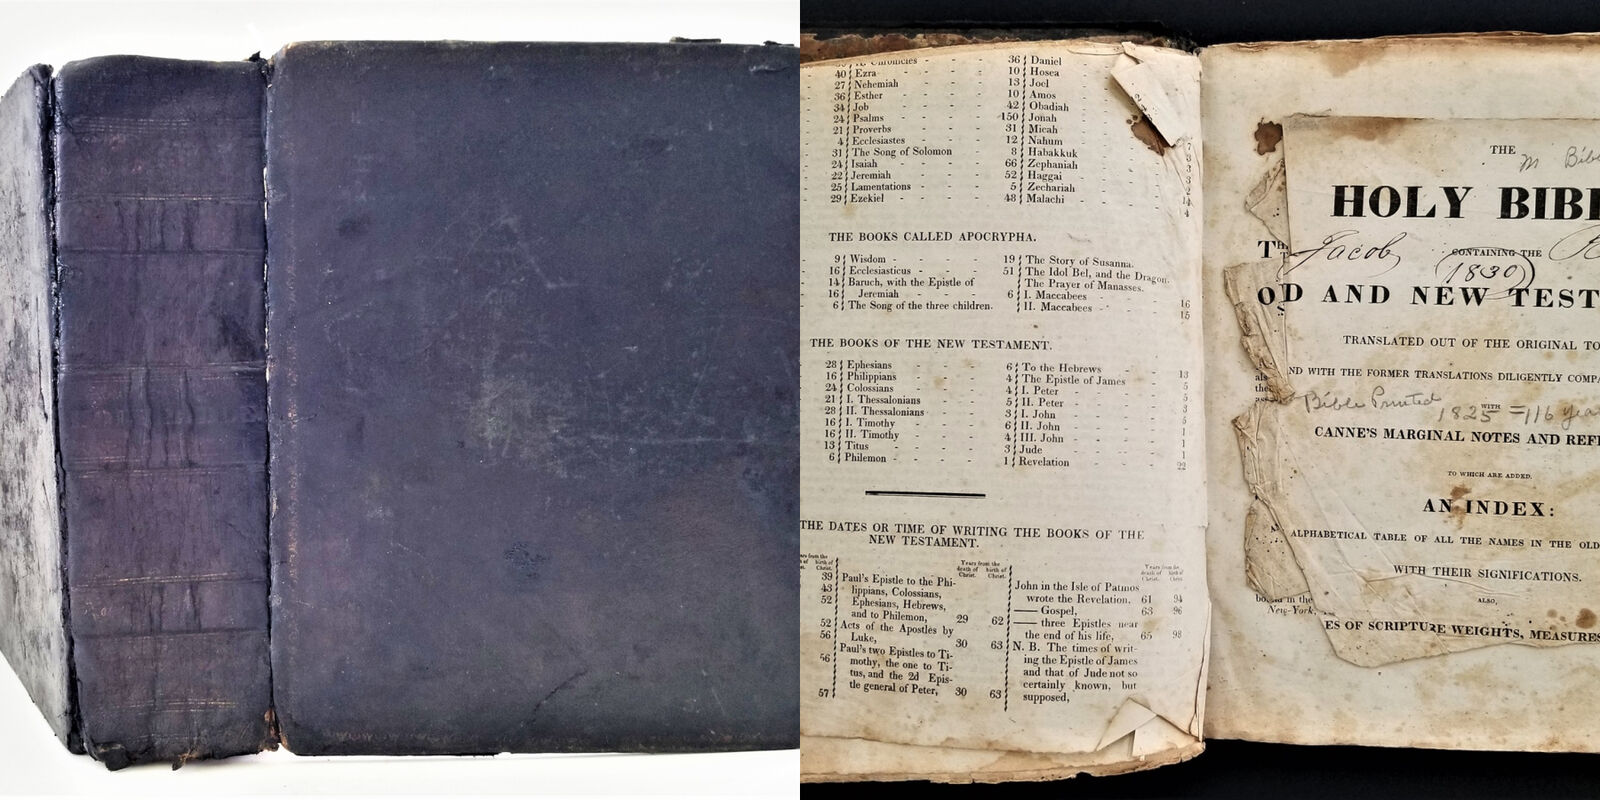 II. Chronicles - - - 36 Daniel
40 Ezra - - - 10 Hosea
27 Nehemiah - - - 13 Joel
36 Esther - - - 10 Amos
34 Job - - - 42 Obadiah
24 Psalms - - - 150 Jonah
21 Proverbs - - - 31 Micah
4 Ecclesiastes - - - 12 Nahum 7
31 The Song of Solomon - 8 Habakkuk 3
24 Isaiah - - - 66 Zephaniah 3
22 Jeremiah - - - 52 Haggai 2
25 Lamentations - - - 5 Zechariah 14
29 Ezekiel - - - 48 Malachi 4
THE BOOKS CALLED APOCRYPHA.
9 Wisdom - - - 19 The Story of Susanna.
16 Ecclesiasticus - - - 51 The Idol Bel, and the Dragon.
14 Baruch, with the Epistle of The Prayer of Manasses.
16 Jeremiah - - - 6 I. Maccabees - 16
6 The Song of the three children. II. Maccabees - 15
THE BOOKS OF THE NEW TESTAMENT.
28 Ephesians - - - 6 To the Hebrews - 13
16 Philippians - - - 4 The Epistle of James - 5
24 Colossians - - - 4 I. Peter - 5
21 I. Thessalonians - - - 5 II. Peter - 3
28 II. Thessalonians - - - 3 I. John - 5
16 I. Timothy - - - 6 II. John - 1
16 II. Timothy - - - 4 III. John - 1
13 Titus - - - 3 Jude - 1
6 Philemon - - - 1 Revelation - 22
THE DATES OR TIME OF WRITING THE BOOKS OF THE
NEW TESTAMENT.
Years from the
death of Christ. birth of Christ.
Years from the
death of Christ. birth of Christ.
39 Paul's Epistle to the Phi-
43 lippians, Colossians,
52 Ephesians, Hebrews,
and to Philemon, 29 62
52 Acts of the Apostles by
56 Luke, 30 63
Paul's two Epistles to Ti-
56 mothy, the one to Ti-
tus, and the 2d Epis-
57 tle general of Peter, 30 63
John in the Isle of Patmos
wrote the Revelation. 61 94
—— Gospel, 63 96
—— three Epistles near
the end of his life, 65 98
N. B. The times of writ-
ing the Epistle of James
and that of Jude not so
certainly known, but
supposed,
THE
HOLY BIB
Jacob
CONTAINING THE
1830
OD AND NEW TEST
TRANSLATED OUT OF THE ORIGINAL TO
ND WITH THE FORMER TRANSLATIONS DILIGENTLY COMPA
Bible Printed 1825 = 116 yea
WITH
CANNE'S MARGINAL NOTES AND REF
TO WHICH ARE ADDED,
AN INDEX:
ALPHABETICAL TABLE OF ALL THE NAMES IN THE OLD
WITH THEIR SIGNIFICATIONS.
ALSO,
ES OF SCRIPTURE WEIGHTS, MEASURES
in the
New-York,